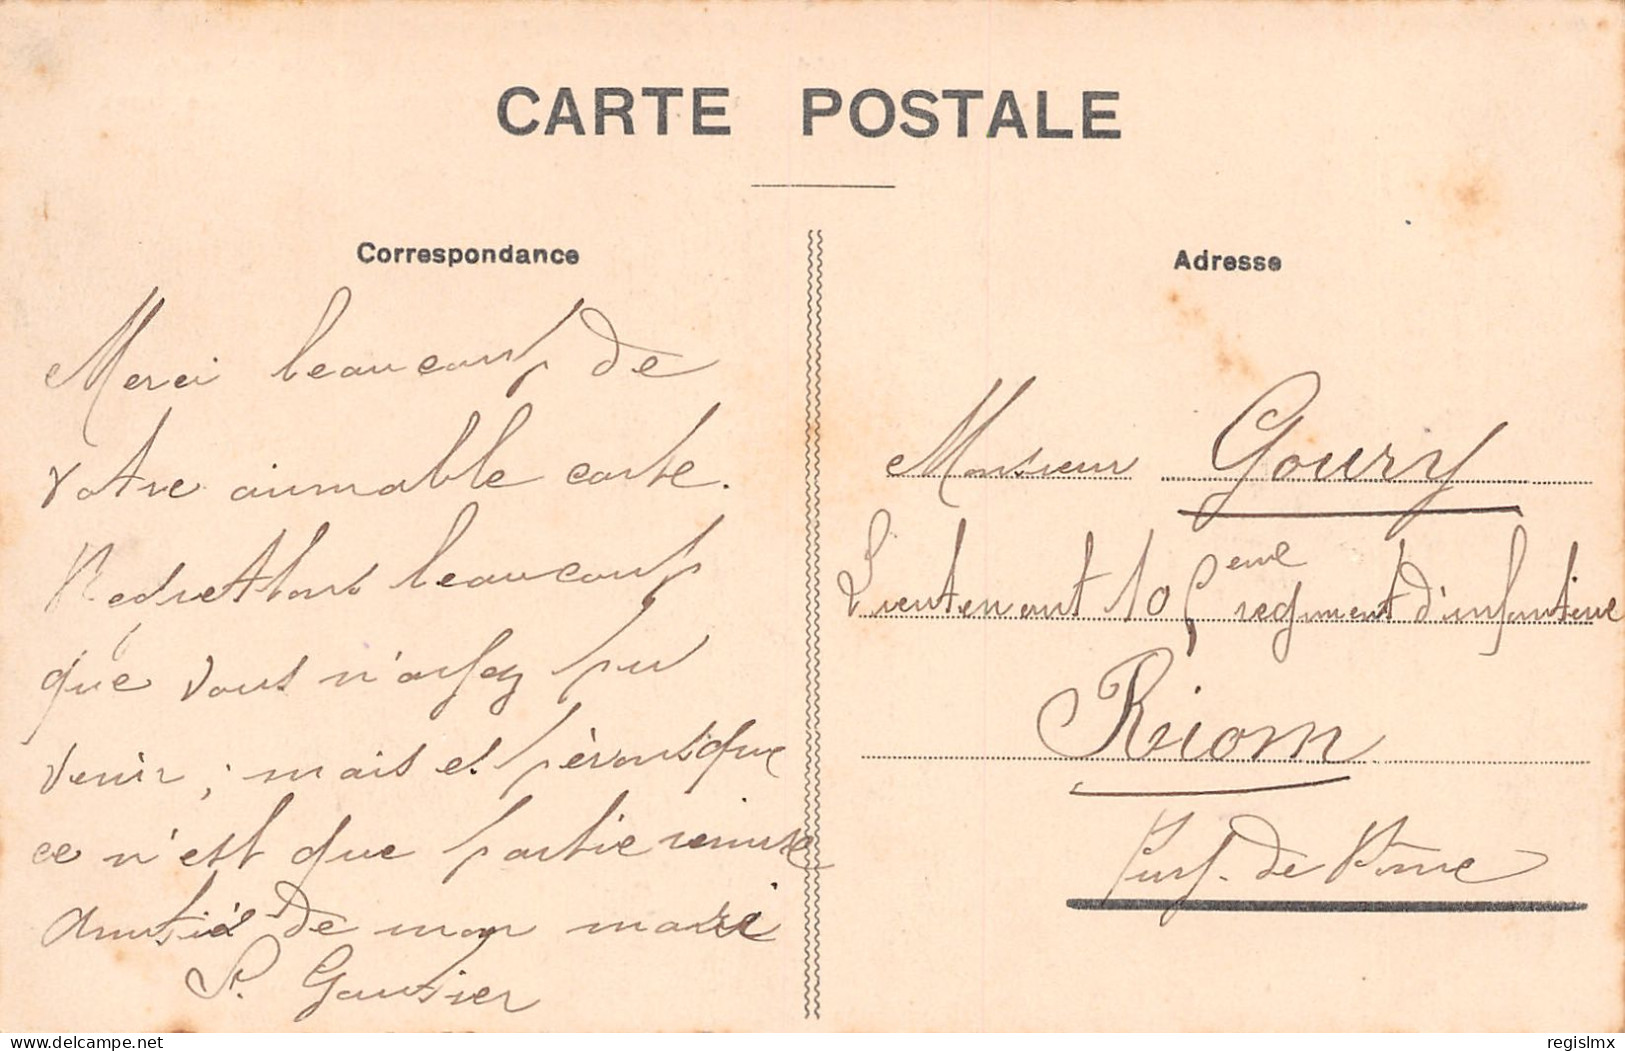 CARTE POSTALE
Correspondance
Merci beaucoup de
votre aimable carte.
Regrettons beaucoup
que vous n'ayez pu
venir; mais espérons que
ce n'est que partie remise
Amitié de mon mari
S. Gautier
Adresse
Monsieur Goury
Lieutenant 105eme regiment d'infanterie
Riom
Puy-de-Dome
www.delcampe.net
regislmx